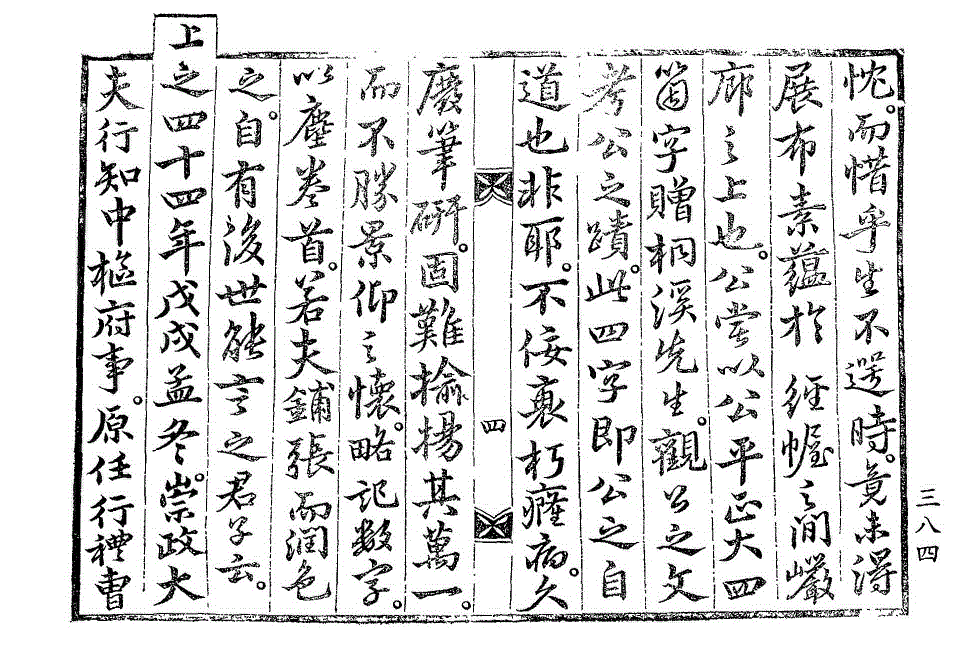 忱。而惜乎生不選時。竟未得
展布素蘊於 經幄之間巖
廊之上也。公嘗以公平正大四
箇字贈桐溪先生。觀公之文
考公之蹟。此四字即公之自
道也非耶。不佞衰朽癃病。久
四
廢筆硏。固難揄揚其萬一。
而不勝景仰之懷。略記數字。
以塵卷首。若夫鋪張而潤色
之。自有後世能言之君子云。
上之四十四年戊戌孟冬。崇政大
夫行知中樞府事。原任行禮曹
三八四